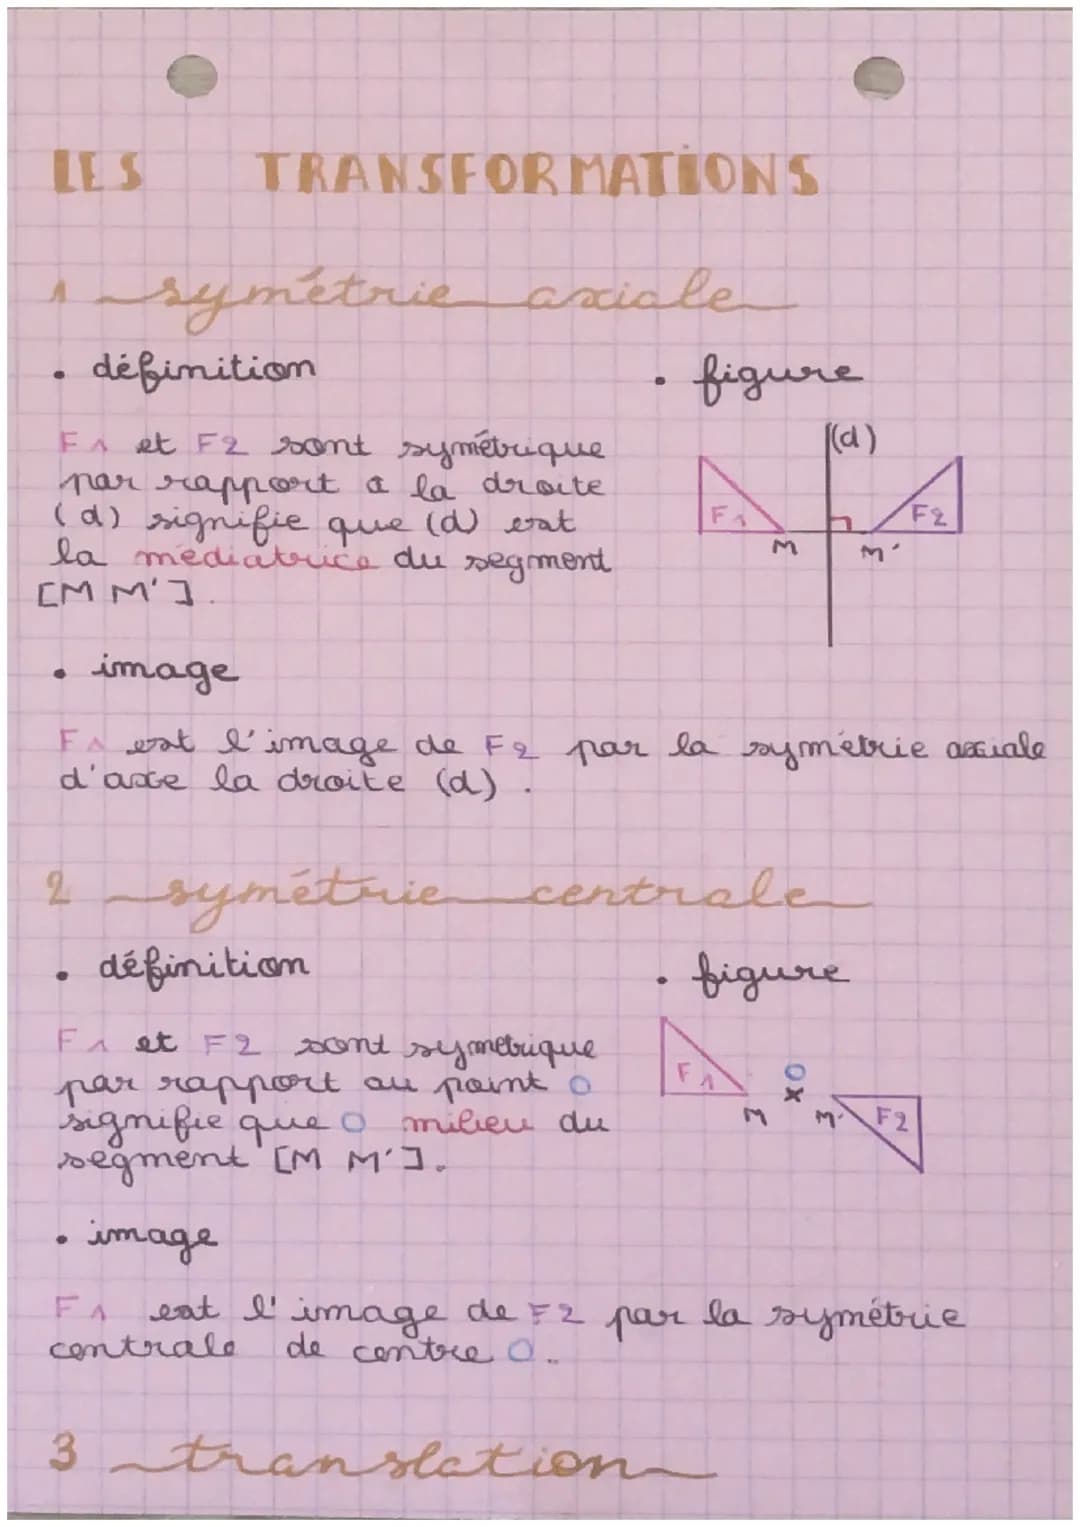 LES TRANSFORMATIONS
1 symétrie axiale
• définition
F1 et F2 sont symétrique
par rapport a la droite
(d) signifie que (d) est
la médiatrice du segment
[M M'].
• figure
(d)
F1
F2
M
M'
• image
F1 est l'image de F2 par la symétrie axiale
d'axe la droite (d).
2 symétrie centrale
• définition
F1 et F2 sont symétrique
par rapport au point O
signifie que O milieu du
segment [M M'].
• figure
F1
O
M
M'
F2
• image
F1 est l'image de F2 par la symétrie
centrale de centre O.
3 translation